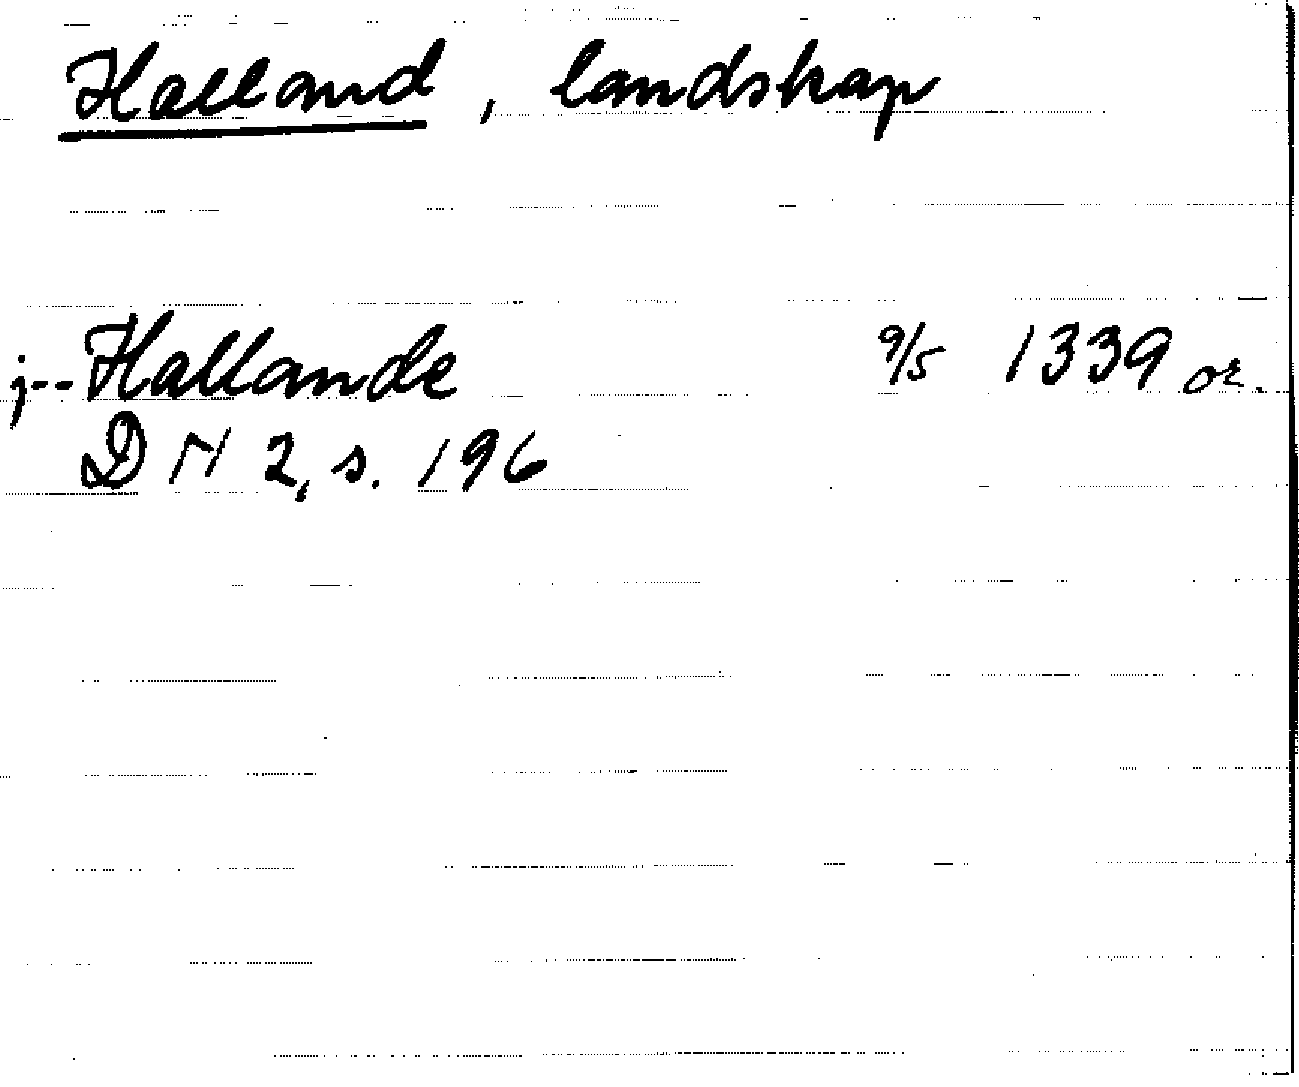 Halland, landskap
j-- Hallande 9/5 1339 or.
DN 2, s. 196